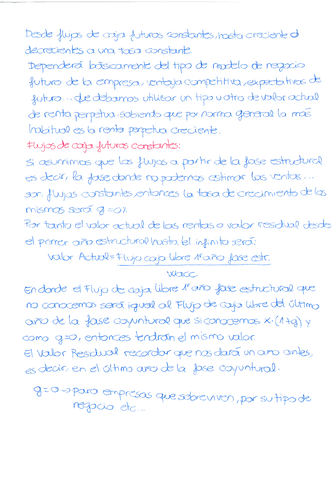 Desde flujos de caja futuros constantes, hasta creciente o
decrecientes a una tasa constante.
Dependerá básicamente del tipo de modelo de negocio
futuro de la empresa, ventaja competitiva, expectativas de
futuro... que debamos utilizar un tipo u otro de valor actual
de renta perpetua sabiendo que por norma general la más
habitual es la renta perpetua creciente.
Flujos de caja futuros constantes:
Si asumimos que los flujos a partir de la fase estructural
es decir, la fase donde no podemos estimar las ventas...
son flujos constantes, entonces la tasa de crecimiento de los
mismos será g=0%.
Por tanto el valor actual de las rentas o valor residual desde
el primer año estructural hasta el infinito será:
Valor Actual = Flujo caja libre 1er año fase estr.
WACC
En donde el Flujo de caja libre 1er año fase estructural que
no conocemos será igual al Flujo de caja libre del último
año de la fase coyuntural que si conocemos x (1+g) y
como g=0, entonces tendrán el mismo valor.
El Valor Residual recordar que nos dará un año antes,
es decir, en el último año de la fase coyuntural.
g=0 → para empresas que sobreviven, por su tipo de
negocio etc...